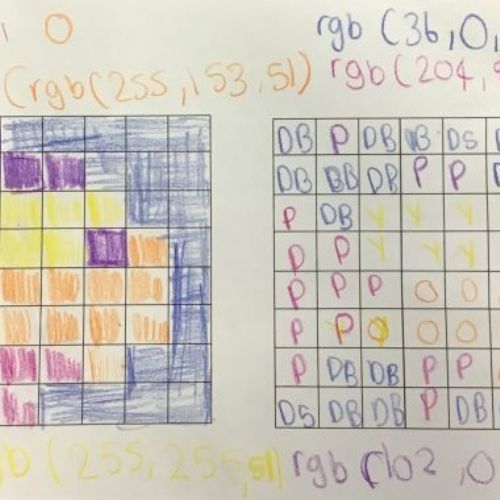 0 rgb (36,0,
(rgb(255,153,51) rgb(204,
DB P DB B DS
DB BB DB P P
P DB Y Y Y
P P Y Y Y
P P P O O
P P O O O
P DB DB P P
DS DB DB P DB
gb (255,255,51) rgb (102,0